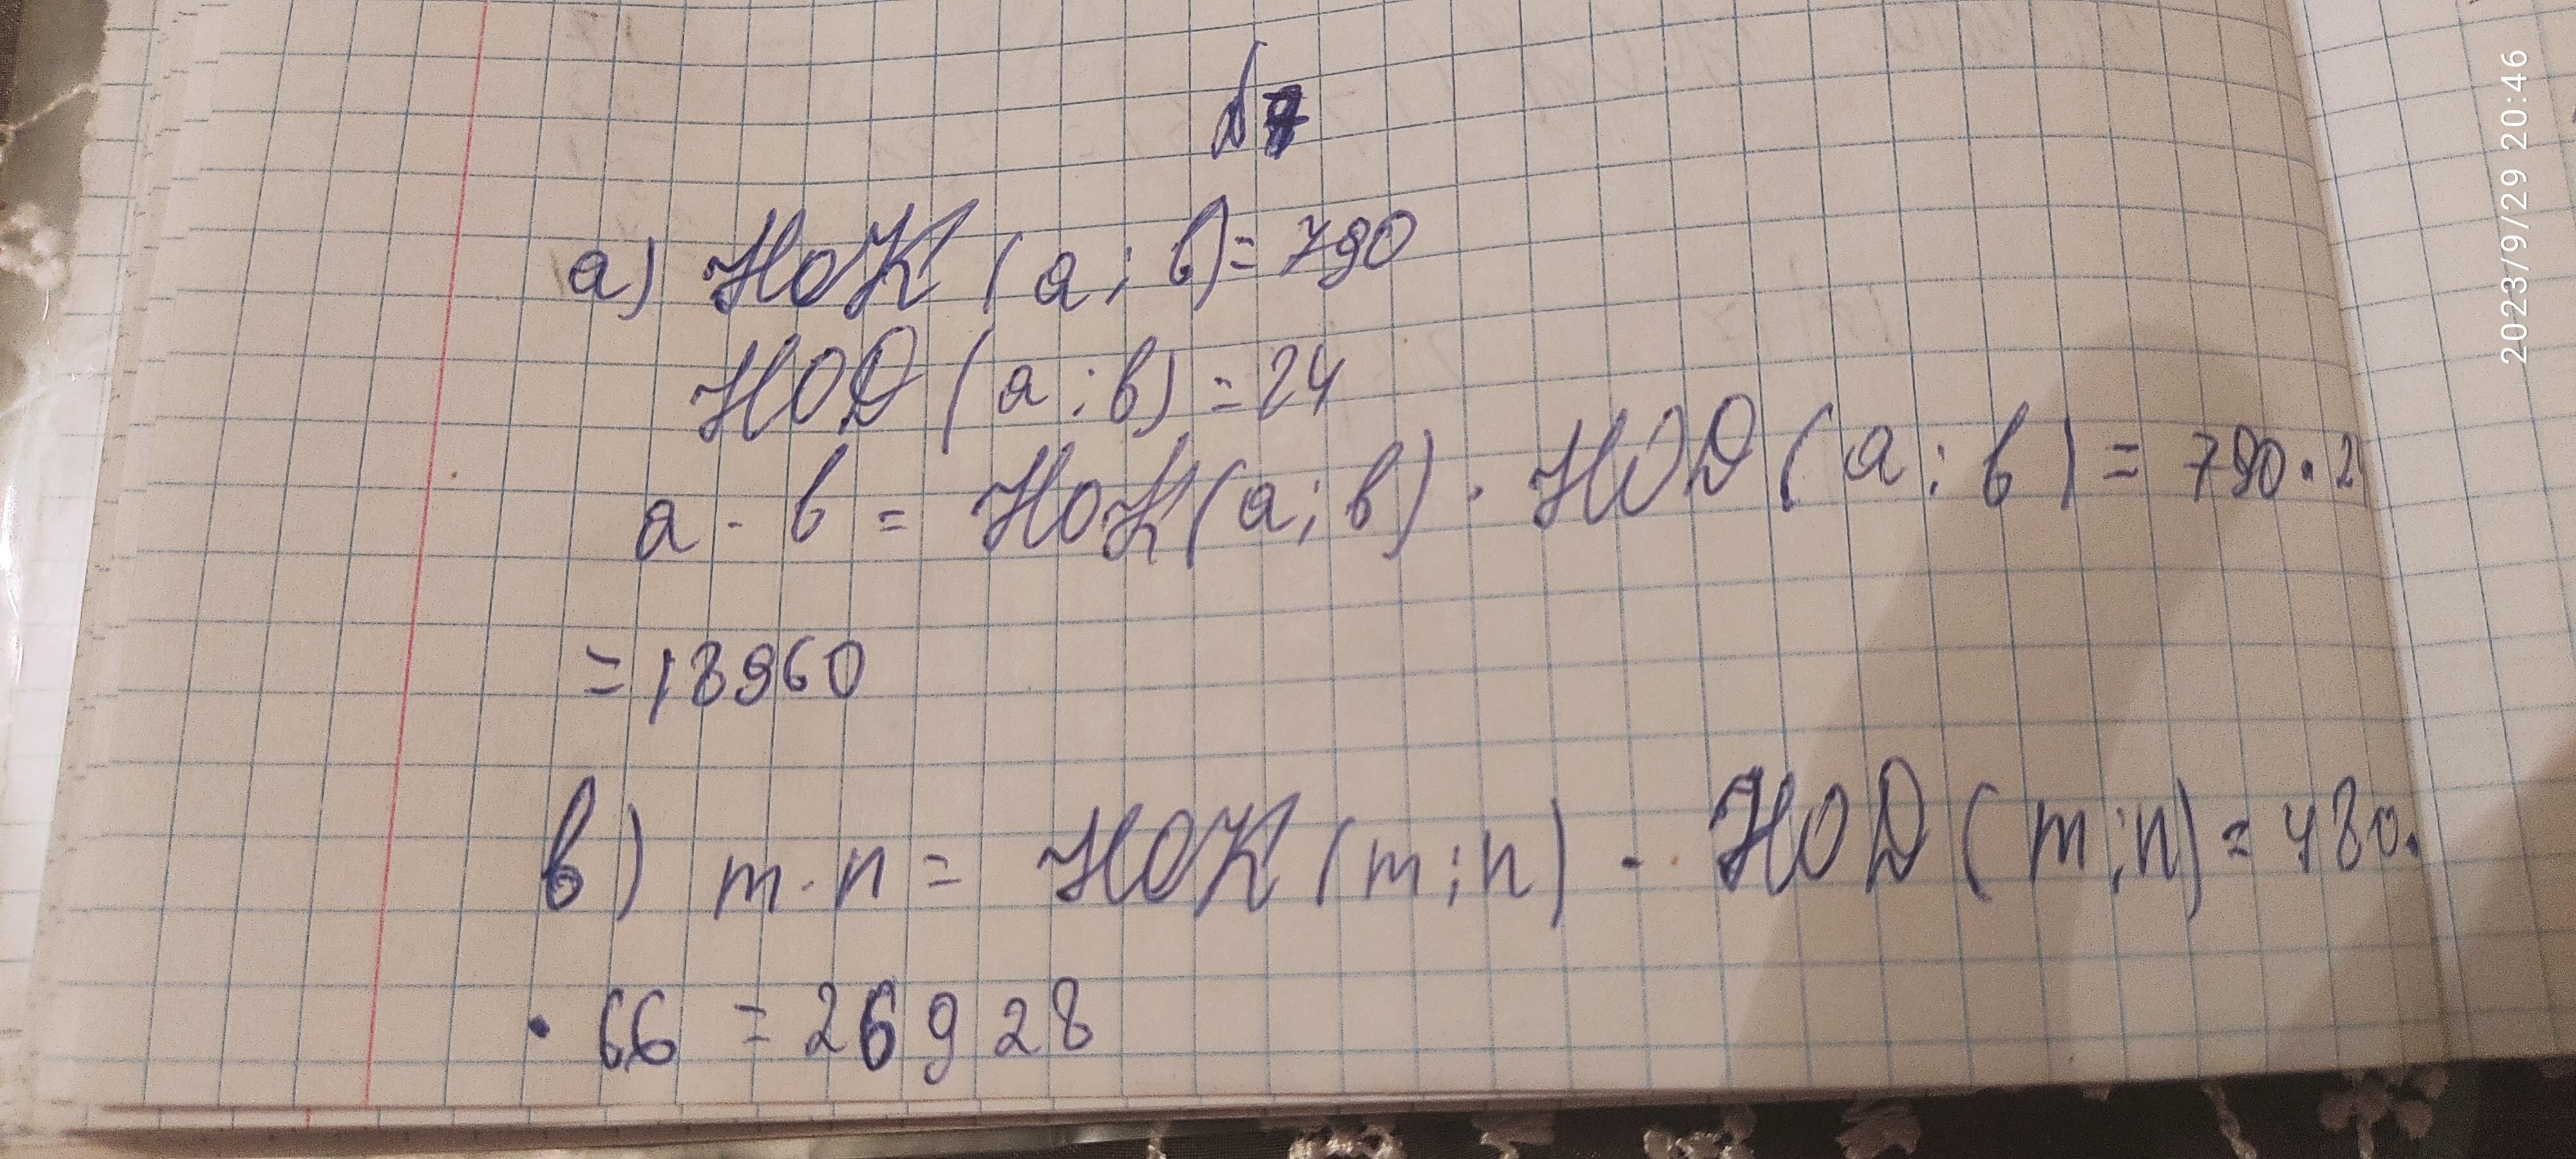 а) НОК (а; в) = 790
НОД (а; в) = 24
а · в = НОК(а; в) · НОД(а; в) = 790 · 24
= 18960
в) m · n = НОК(m; n) · НОД(m; n) = 480 ·
· 66 = 26928
2023/9/29 20:46